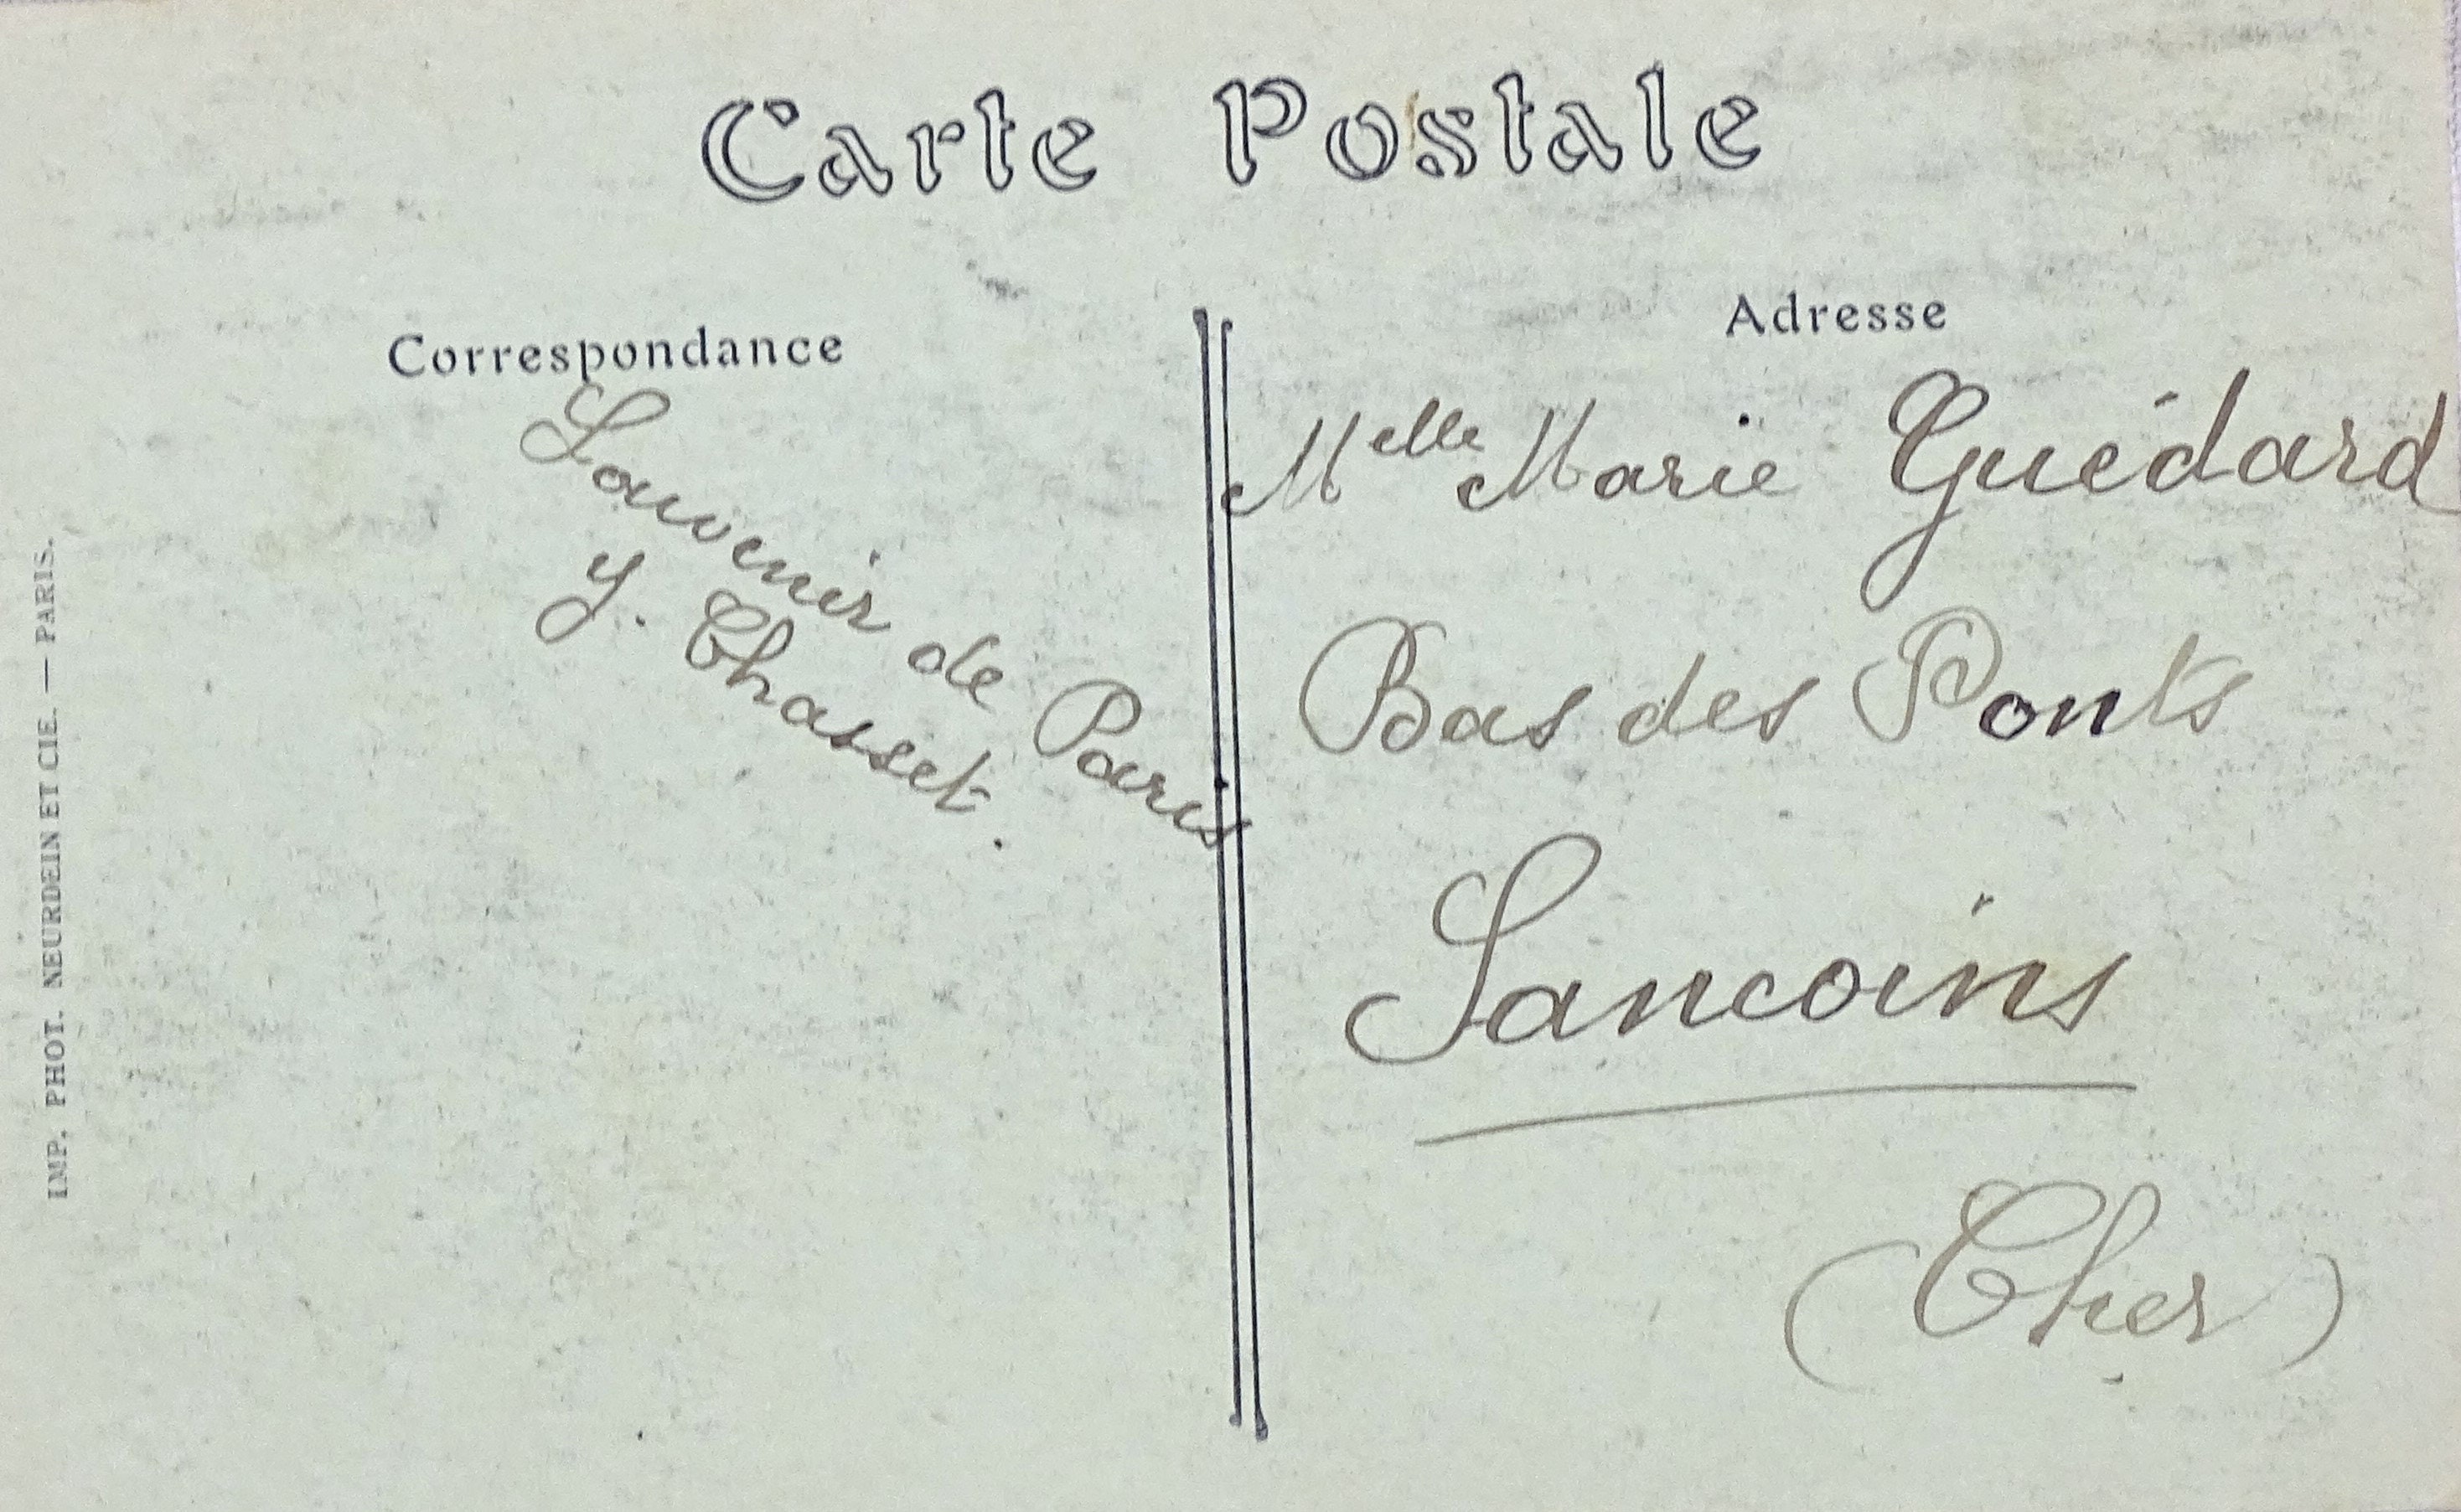 Carte Postale
Correspondance
Souvenir de Paris
Y. Chasset.
Adresse
Melle Marie Guédard
Bas des Ponts
Sancoins
(Cher)
IMP. PHOT. NEURDEIN ET CIE. — PARIS.